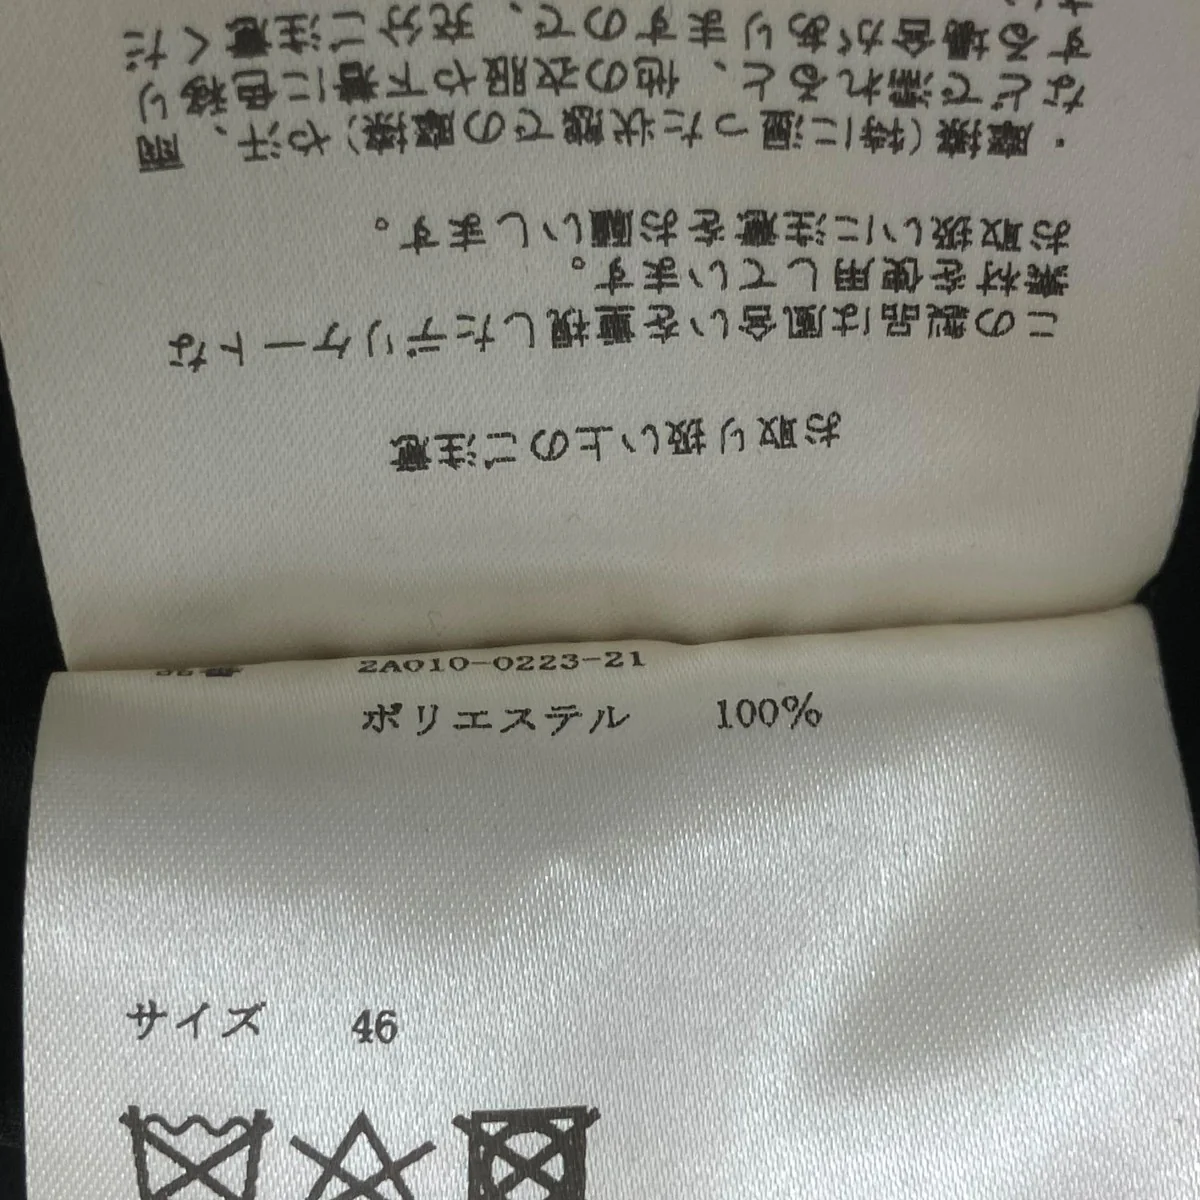 お取り扱い上のご注意
この製品は風合いを重視したデリケートな
素材を使用しています。
お取扱いに注意をお願いします。
・摩擦(特に湿った状態での摩擦)や汗、雨
などで濡れると、他の衣服や下着に色移り
する場合がありますので、充分ご注意くだ
品番 2A010-0223-21
ポリエステル 100%
サイズ 46